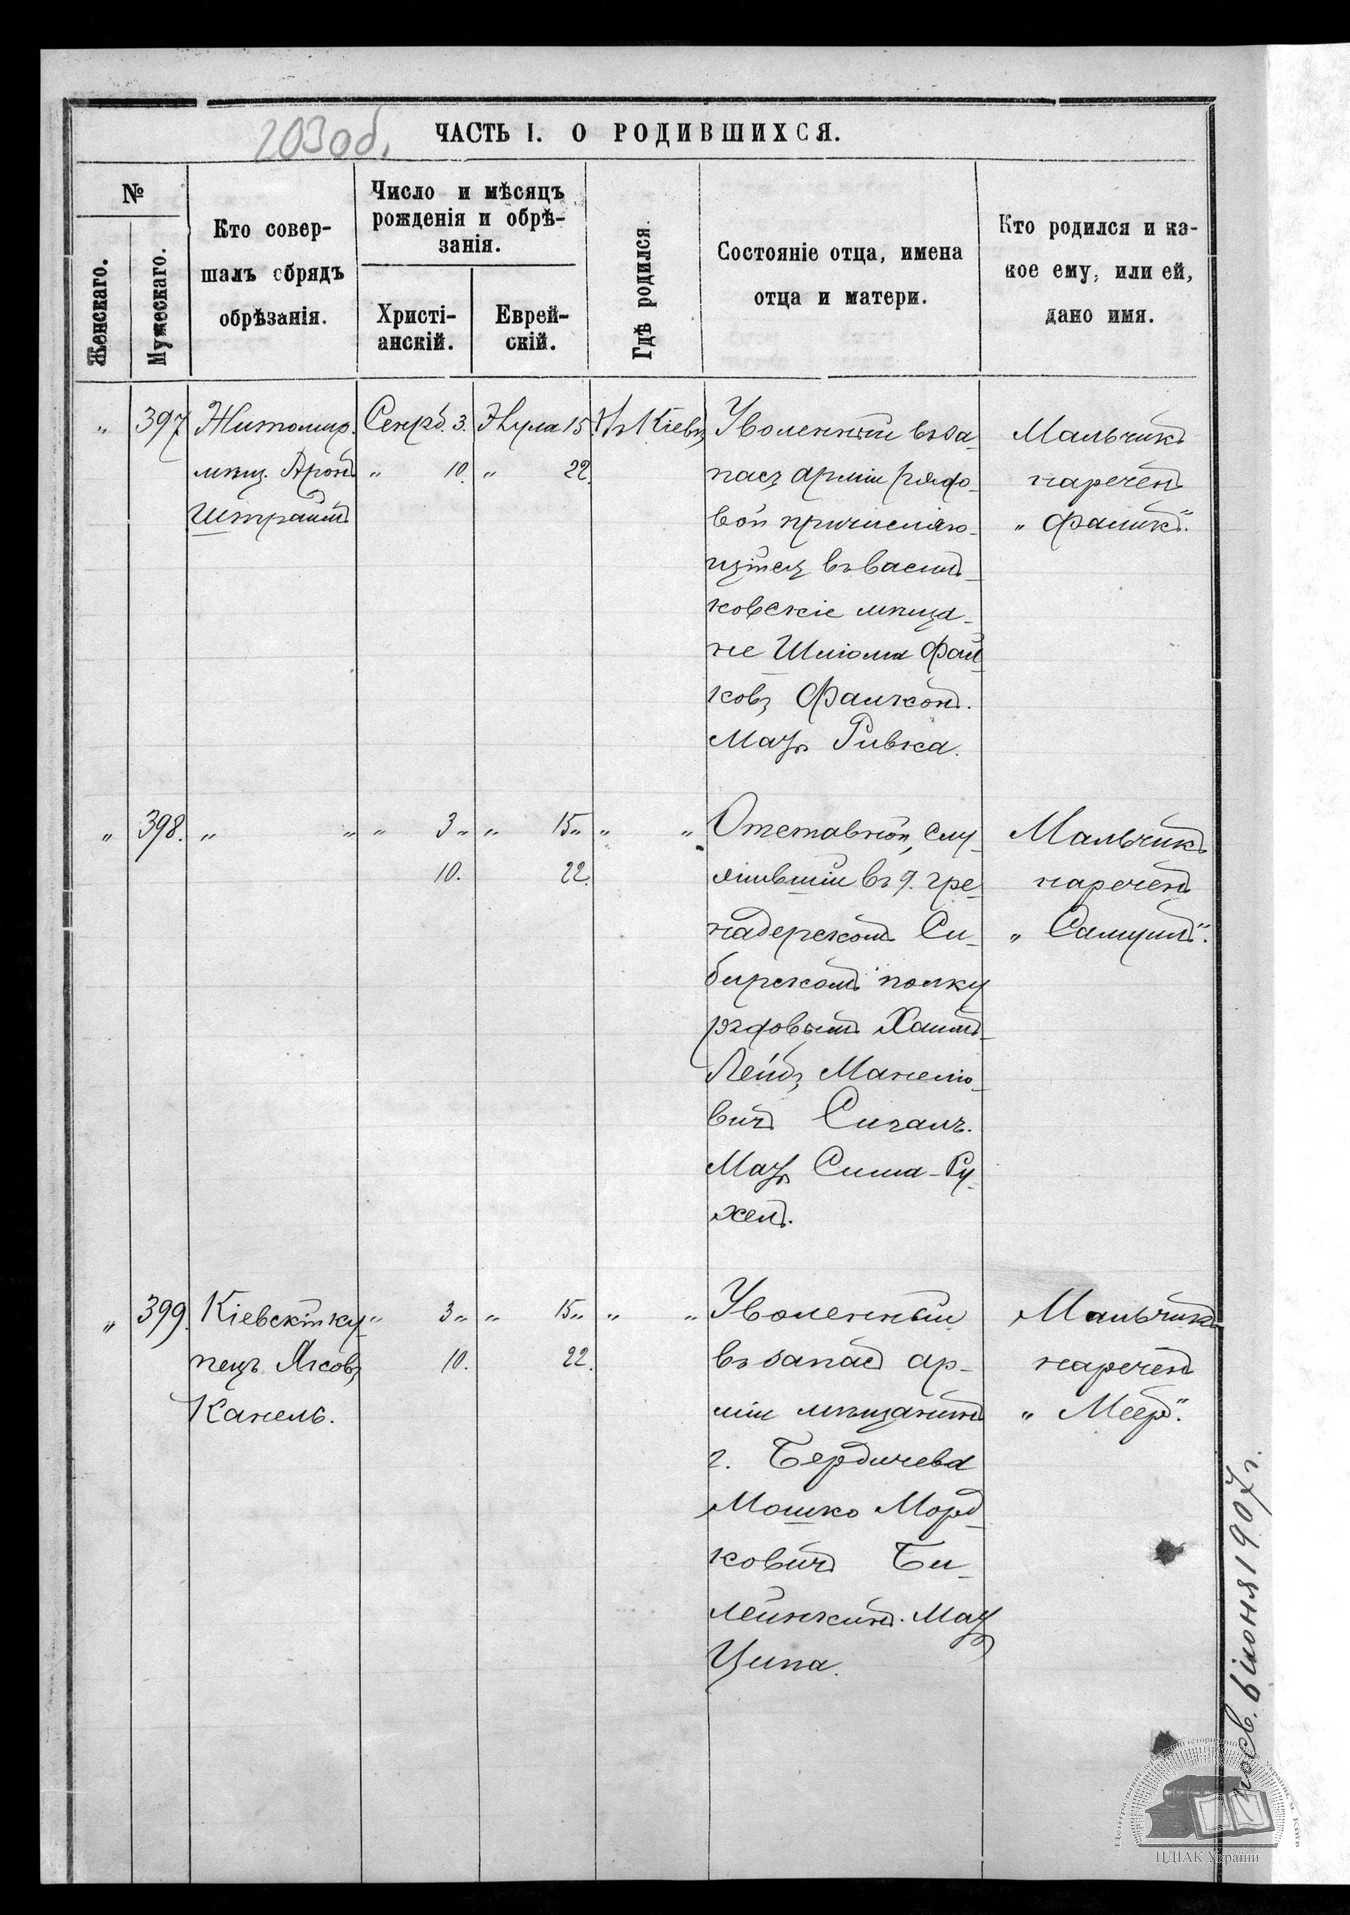 203 об.
ЧАСТЬ I. О РОДИВШИХСЯ.
№
Женскаго.
Мужескаго.
Кто совер-
шалъ обрядъ
обрѣзанія.
Число и мѣсяцъ
рожденія и обрѣ-
занія.
Христі-
анскій.
Еврей-
скій.
Гдѣ родился.
Состояніе отца, имена
отца и матери.
Кто родился и ка-
кое ему, или ей,
дано имя.
„ 397
Житомир.
мѣщ. Аронъ
Сентб. 3.
„ 10.
Элула 15.
„ 22.
Въ Кіевѣ
Уволенный въ за-
пасъ арміи рядо-
вой причисляю-
щійся въ Василь-
ковскіе мѣща-
не Шлiома Фай-
ковъ Фалконъ.
Мать Ривка.
Мальчикъ
нареченъ
„Фаликъ".
„ 398. „ „
„ 3 „
10.
„ 15 „
22.
„ „
Отставной, слу-
жившій въ 9. гре-
надерскомъ Си-
бирскомъ полку
рядовымъ Хаимъ
Лейбъ Манелю-
вичъ Сигалъ.
Мать Сима-Ру-
хель.
Мальчикъ
нареченъ
„Самуилъ".
„ 399.
Кіевскій ку-
пецъ Яковъ
Канель.
„ 3 „
10.
„ 15 „
22.
„ „
Уволенный
въ запасъ ар-
міи мѣщанинъ
г. Бердичева
Мошко Морд-
ковичъ Би-
лейнкинъ. Мать
Ципа.
Мальчикъ
нареченъ
„Мееръ".
1907 г.
ЦДІАК України